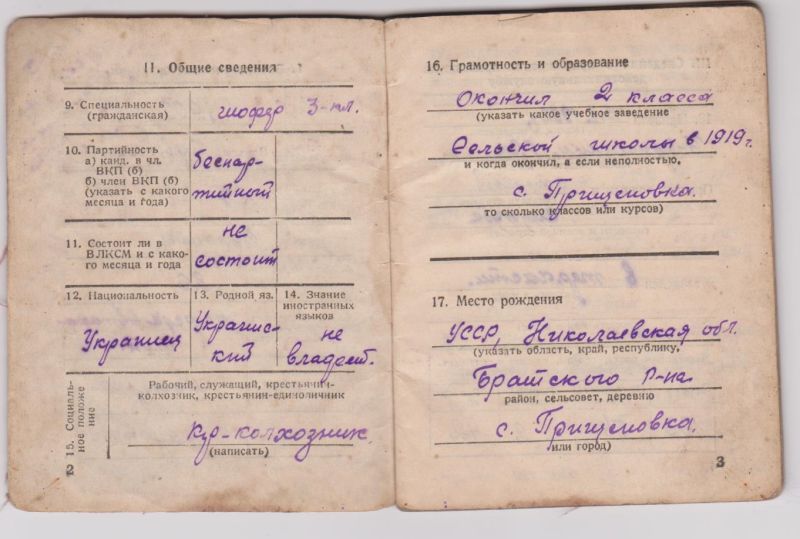 11. Общие сведения
9. Специальность
(гражданская)
шофер 3-кл.
10. Партийность
а) канд. в чл.
ВКП (б)
б) член ВКП (б)
(указать с какого
месяца и года)
беспар-
тийный
11. Состоит ли в
ВЛКСМ и с како-
го месяца и года
не
состоит
12. Национальность
Украинец
13. Родной яз.
Украинс-
кий
14. Знание
иностранных
языков
не
владеет.
15. Социаль-
ное положе-
ние
Рабочий, служащий, крестьянин-
колхозник, крестьянин-единоличник
Кр-колхозник
(написать)
2
16. Грамотность и образование
Окончил 2 класса
(указать какое учебное заведение
Сельской школы в 1919 г.
и когда окончил, а если неполностью,
с. Прищеповка.
то сколько классов или курсов)
17. Место рождения
УССР, Николаевская обл.
(указать область, край, республику,
Братского р-на
район, сельсовет, деревню
с. Прищеповка.
или город)
3